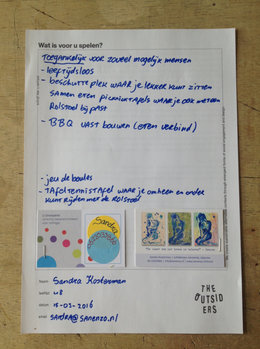 Wat is voor u spelen?
Toegankelijk voor zoveel mogelijk mensen
- leeftijdsloos
- beschutte plek waar je lekker kunt zitten
samen eten picknicktafels waar je ook met een
Rolstoel bij past
- BBQ vast bouwen (eten verbind)
- jeu de boules
- Tafeltennistafel waar je omheen en onder
kunt rijden met de Rolstoel
Sandra
naam: Sandra Kosterman
leeftijd: 48
datum: 15-02-2016
email: sandra@sanenzo.nl
THE
OUTSID
ERS